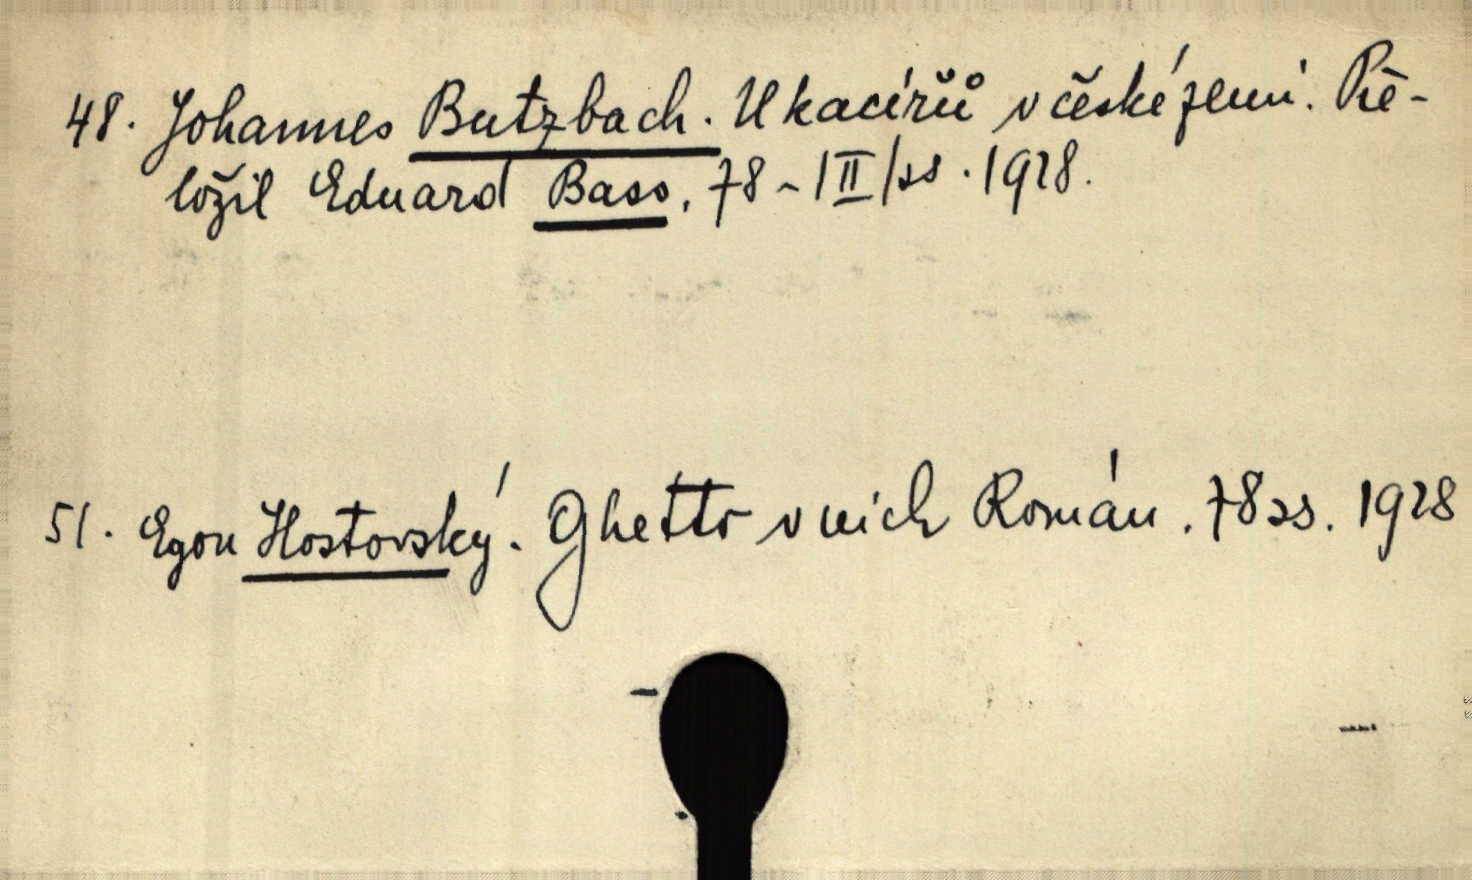 48. Johannes Butzbach. U kacířů v české zemi. Pře-
ložil Eduard Bass. 78 - III/ss. 1928.
51. Egon Hostovský. Ghetto v nich Román. 78 ss. 1928